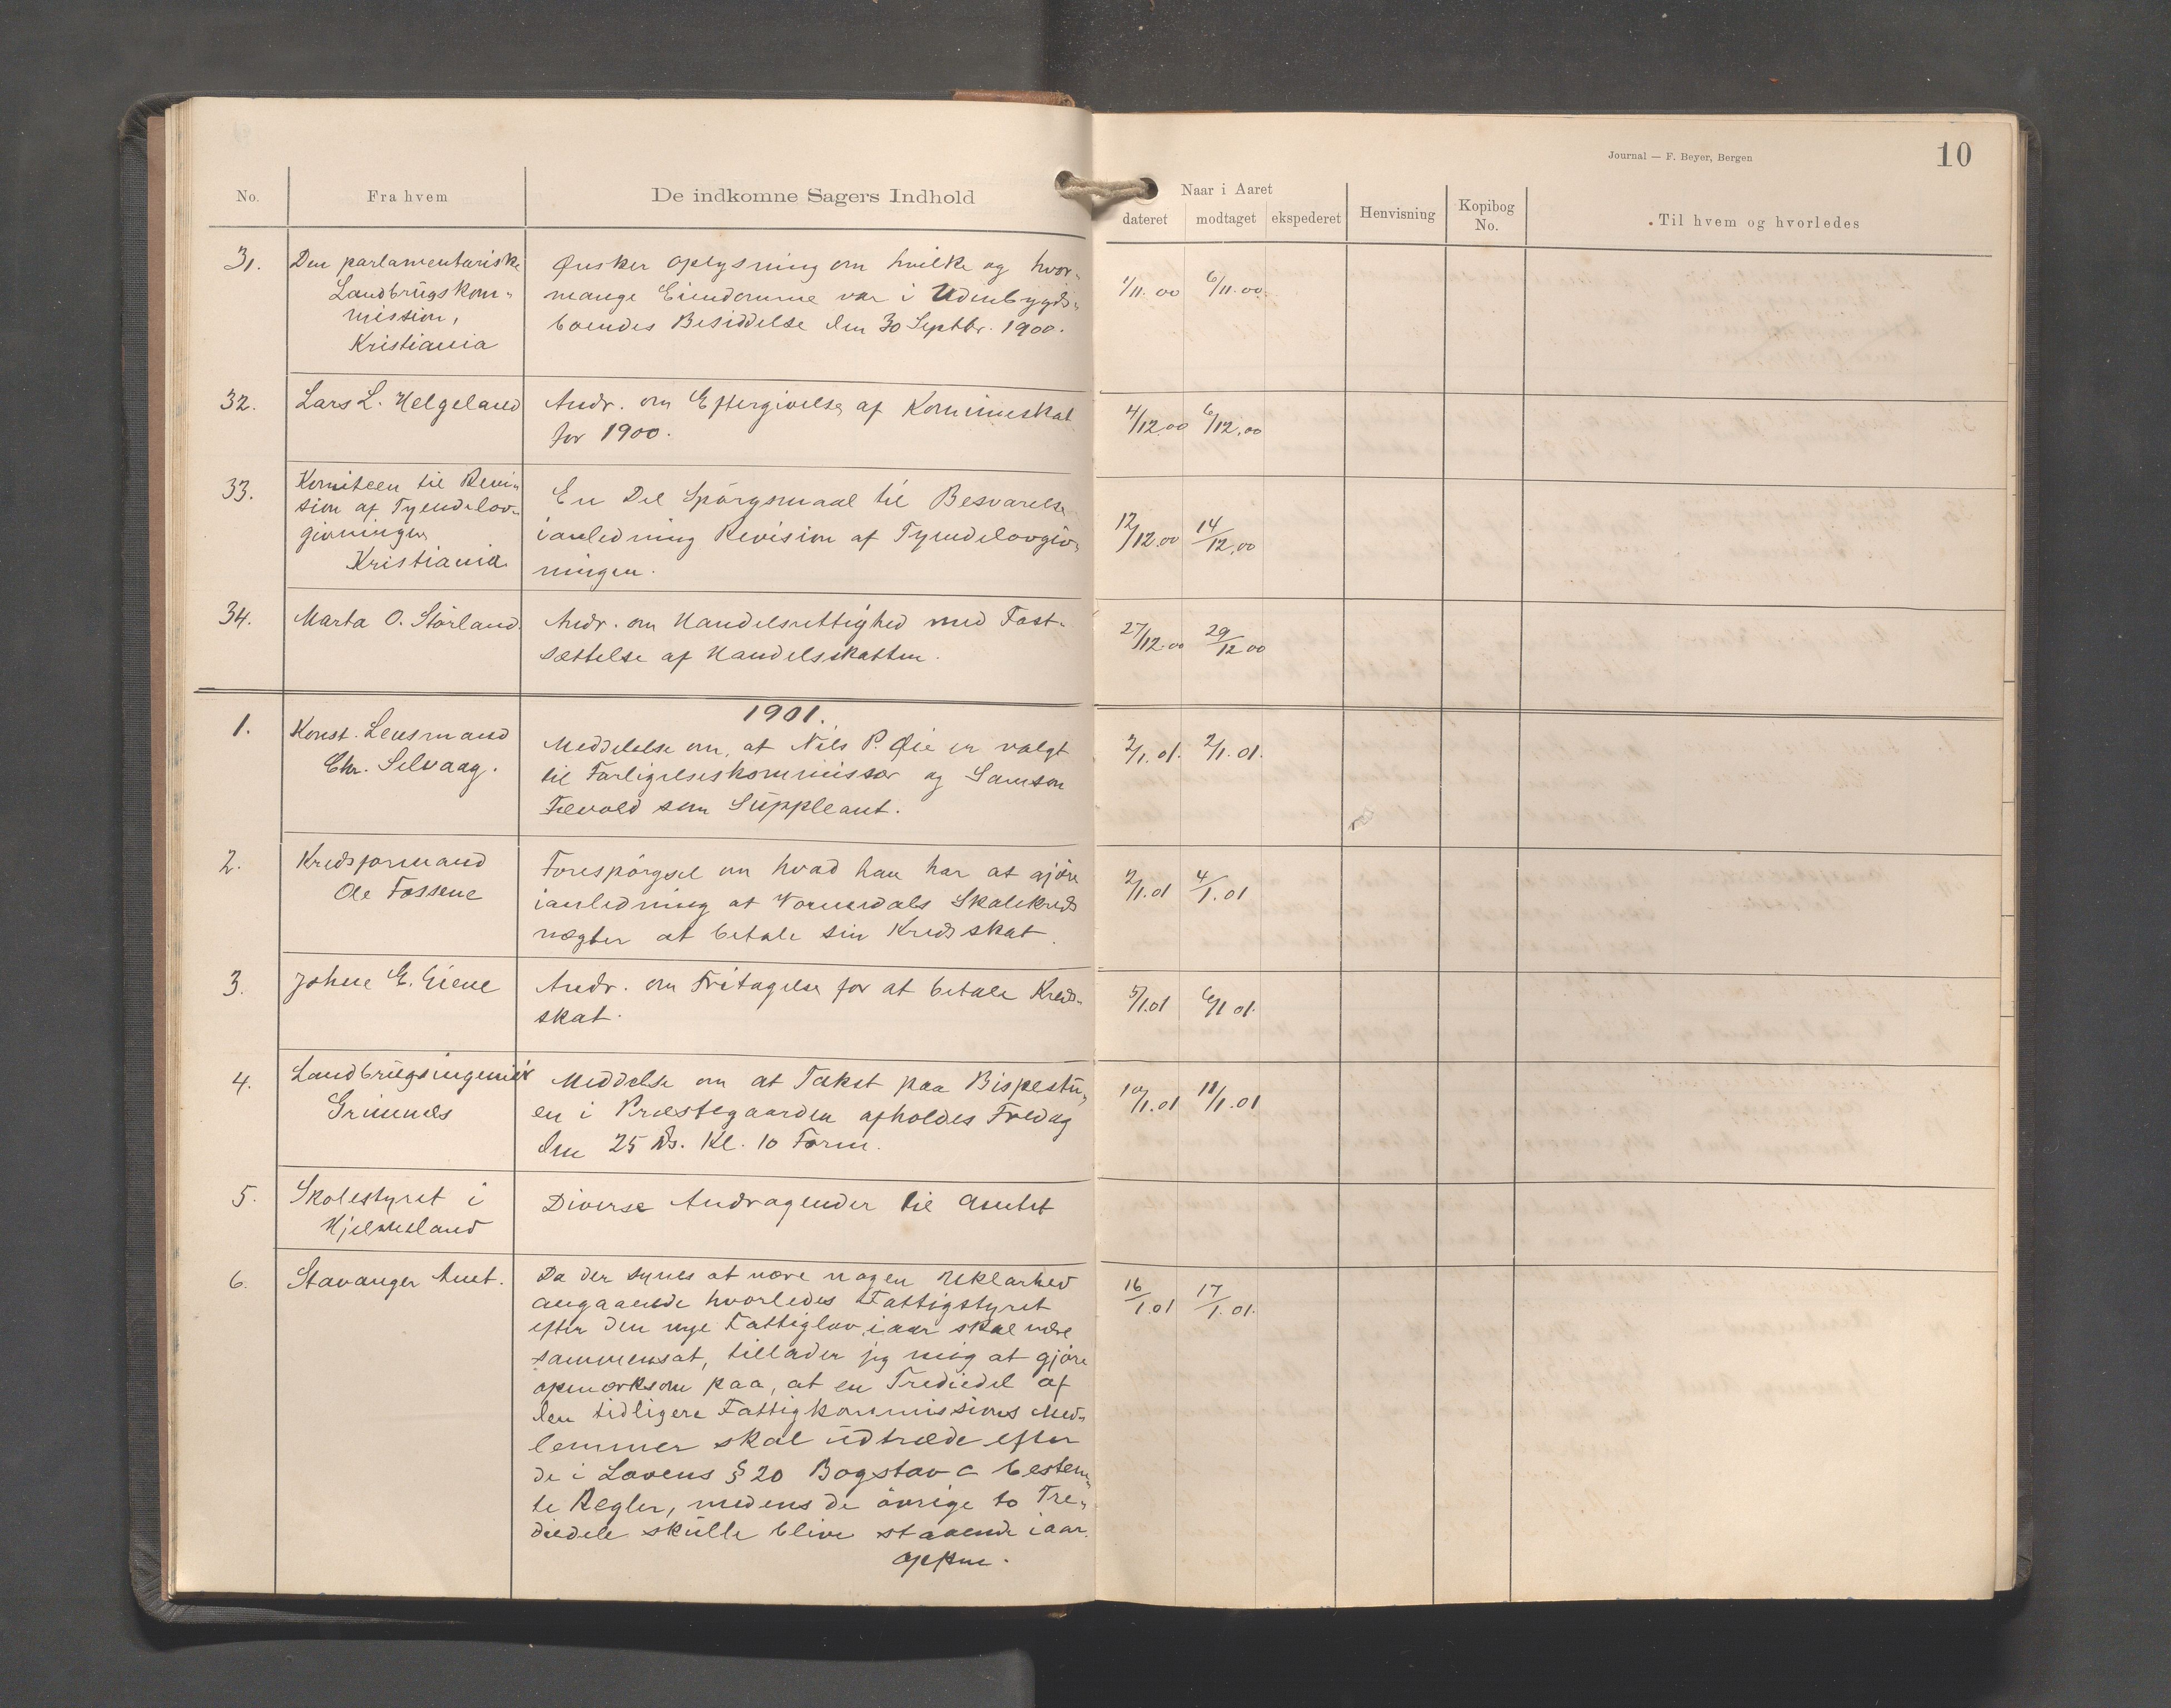 Journal — F. Beyer, Bergen
10
No.
Fra hvem
De indkomne Sagers Indhold
Naar i Aaret
dateret
modtaget
ekspederet
Henvisning
Kopibog
No.
Til hvem og hvorledes
31.
Den parlamentariske
Landbrugskom-
mission,
Kristiania
Ønsker Oplysning om hvilke og hvor-
mange Eiendomme var i Udenbygds-
boendes Besiddelse den 30 Septbr. 1900.
1/11.00
6/11.00.
32.
Lars L. Helgeland
Andr. om Eftergivelse af Kommuneskat
for 1900.
4/12.00
6/12.00
33.
Komiteen til Revi-
sion af Tyendelov-
givningen
Kristiania
En Del Spörgsmaal til Besvarelse
ianledning Revision af Tyendelovgiv-
ningen.
12/12.00
14/12.00
34.
Marta O. Störland.
Andr. om Handelsrettighed med Fast-
sættelse af Handelsskatten.
27/12.00
29/12.00
1901.
1.
Konst. Lensmand
Chr. Selvaag.
Meddelelse om, at Nils P. Øie er valgt
til Forligelseskommissær og Samson
som Suppleant.
2/1.01.
2/1.01.
2.
Kredsformand
Ole Fossene
Forespörgsel om hvad han har at gjöre
ianledning at Vormedals Skolekreds
nægter at betale sin Kredsskat.
2/1.01
4/1.01
3.
Johne E. Eiene
Andr. om Fritagelse for at betale Kreds-
skat.
5/1.01
6/1 01.
4.
Landbrugsingeniör
Grimnes
Meddelse om at Takst paa Bispestu-
en i Præstegaarden afholdes Fredag
den 25 ds. Kl. 10 Form.
10/1.01
11/1.01
5.
Skolestyret i
Hjelmeland
Diverse Andragender til Amtet
6.
Stavanger Amt.
Da der synes at være nogen Uklarhed
angaaende hvorledes Fattigstyret
efter den nye Fattiglov iaar skal være
sammensat, tillader jeg mig at gjöre
opmærksom paa, at en Trediedel af
den tidligere Fattigkommissions Med-
lemmer skal udtræde efter
de i Lovens § 20 Bogstav c bestem-
te Regler, medens de övrige to Tre-
diedele skulle blive staaende iaar.
16/1.01
17/1.01.